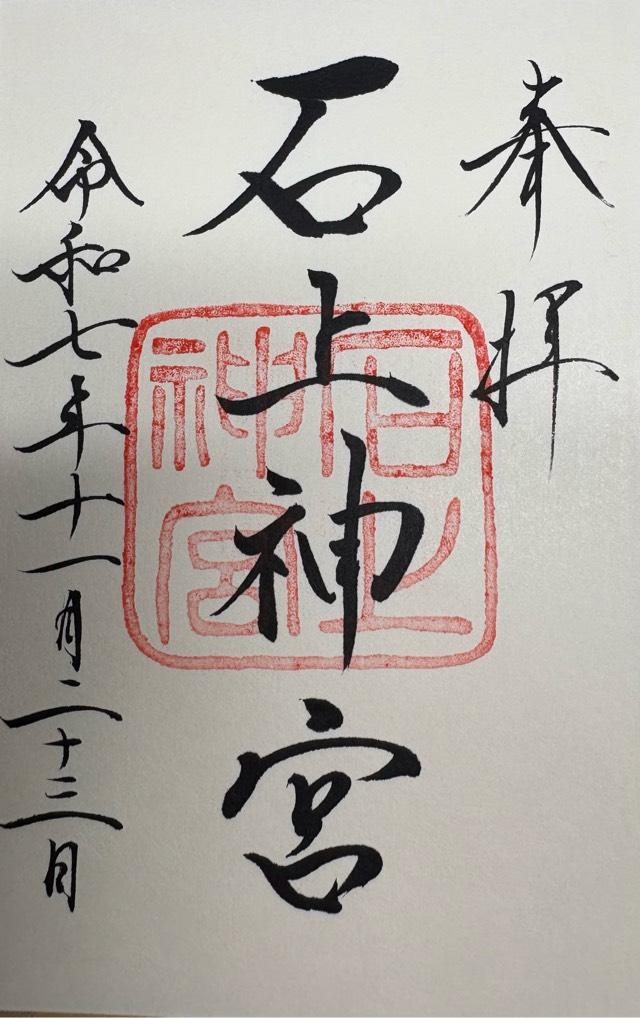 奉拝
石上神宮
石上神宮
令和七年十一月二十三日